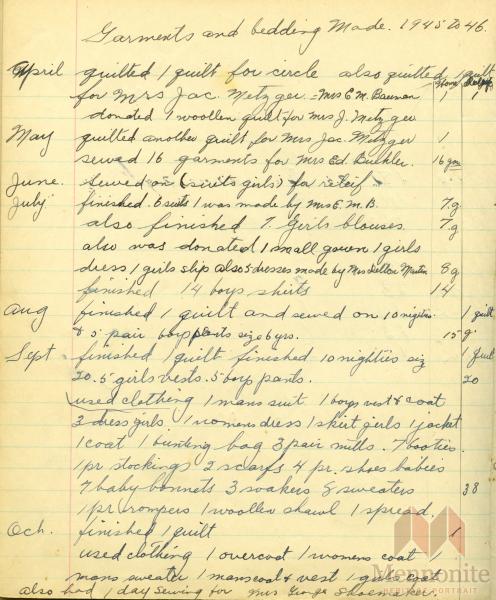 Garments and bedding Made. 1945 to 46.
April quilted 1 quilt for circle also quilted 1 quilt
for Mrs Jac. Metzger - Mrs E. M. Bauman 1 1
donated 1 woollen quilt for Mrs J. Metzger
May quilted another quilt for Mrs Jac. Metzger 1
sewed 16 garments for Mrs Ed. 16
June. sewed on (suits girls) for relief
July finished 6 suits 1 was made by Mrs E. M. B. 7.g
also finished 7 Girls blouses 7.g
also was donated 1 small gown 1 girls
dress 1 girls slip also 5 dresses made by Mrs Martin 8 g
finished 14 boys shirts 14
Aug finished 1 quilt and sewed on 10 nighties. 1 quilt
& 5 pair boys pants size 6 yrs. 15 g.
Sept finished 1 quilt finished 10 nighties siz 1 Quil
20. 5 girls vests. 5 boys pants. 20
used clothing 1 mans suit 1 boys vest & coat
3 dress girls 1 womens dress 1 skirt girls 1 jacket
1 coat 1 bunting bag 3 pair mitts. 7 booties.
1 pr stockings 2 scarfs 4 pr. shoes babies
7 baby bonnets 3 soakers 8 sweaters 38
1 pr. rompers 1 woollen shawl 1 spread.
Och. finished 1 quilt 1
used clothing 1 overcoat 1 womens coat 1
mans sweater 1 mans coat & vest 1 girls coat
also had 1 day sewing for Mrs George Shoemaker.
Mennonite